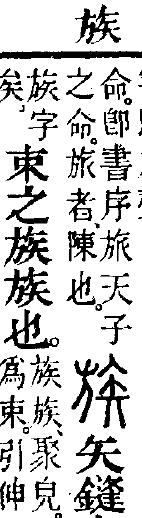 族
命。卽書序旅天子
之命。旅者、陳也。
族
矢鏠
族字
矣。
束之族族也。
族族、聚皃。
爲束。引伸